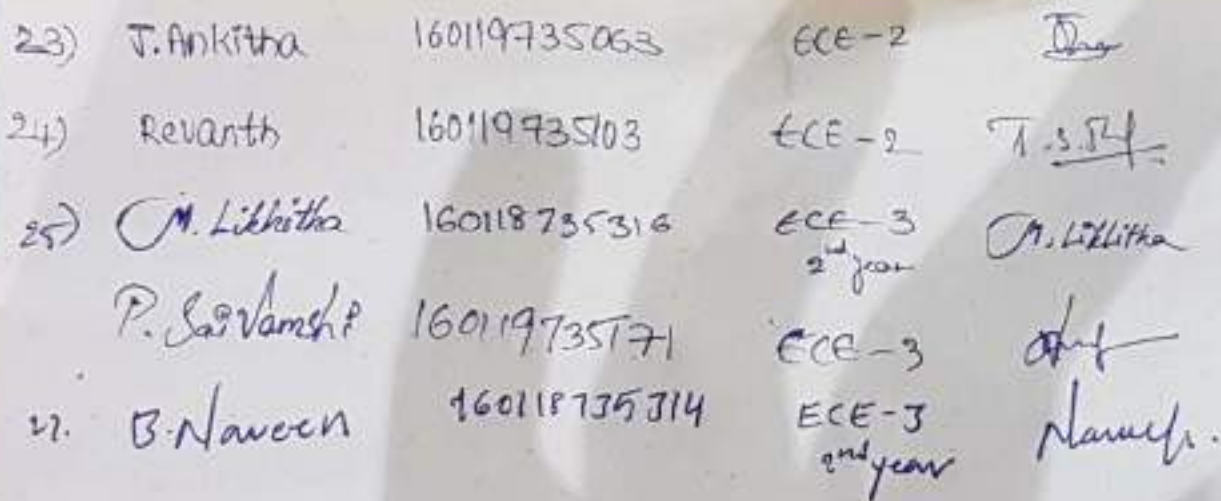 23) J. Ankitha 160119735063 ECE-2
24) Revanth 160119735103 ECE-2
25) M. Likhitha 160118735316 ECE-3 M. Likhitha
2nd year
P. Sai Vamshi 160119735171 ECE-3
27. B. Naveen 160118735314 ECE-3
2nd year